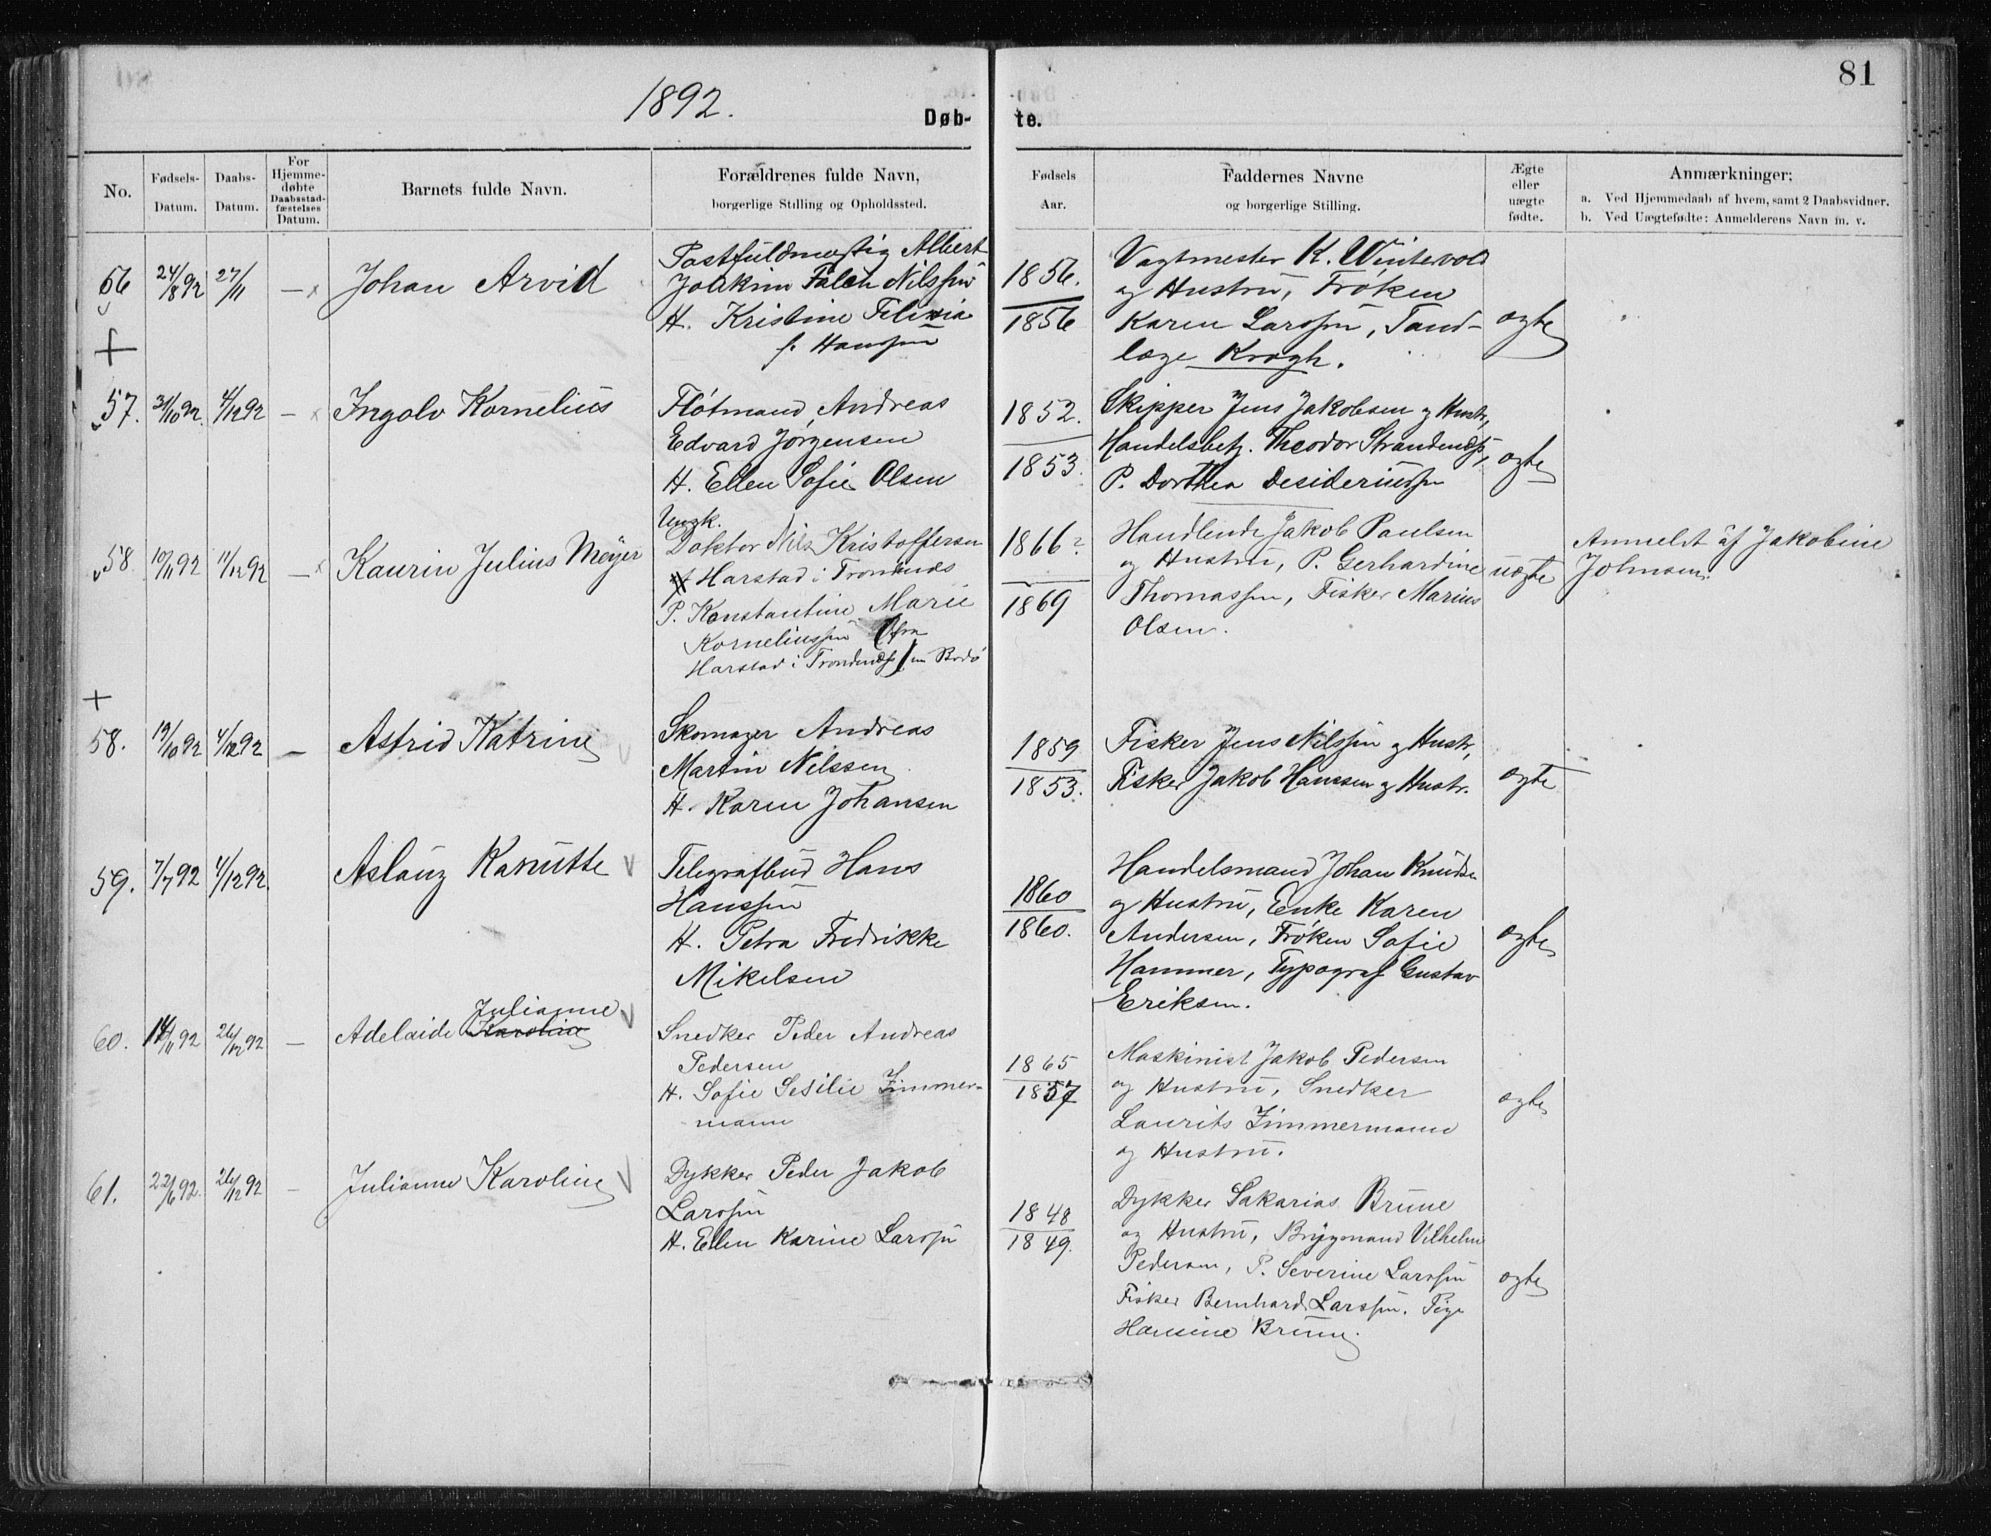 1892.
81
Døb-
te.
No.
Fødsels-
Datum.
Daabs-
Datum.
For
Hjemme-
døbte
Daabsstad-
fæstelses
Datum.
Barnets fulde Navn.
Forældrenes fulde Navn,
borgerlige Stilling og Opholdssted.
Fødsels
Aar.
Faddernes Navne
og borgerlige Stilling.
Ægte
eller
uægte
fødte.
Anmærkninger:
a. Ved Hjemmedaab af hvem, samt 2 Daabsvidner.
b. Ved Uægtefødte: Anmelderens Navn m. v.
56 24/8 92 27/11 — Johan Arvid
Postfuldmægtig Albert
Joakim Falch Nilssen
H. Kristine Felixia
f. Hanssen
1856.
1856
Vagtmester K. Wintervold
og Hustru, Frøken
Karen Larssen, Tand-
læge Krogh.
ægte
57. 31/10 92. 4/12 92 — Ingolv Kornelius
Fløtmand Andreas
Edvard Jørgensen
H. Ellen Sofie Olsen
1852.
1853.
Skipper Jens Jakobsen og Hustr,
Handelsbetj. Theodor
P. Dorthea Desideriussen
ægte
58 10/11 92 11/12 92 — Kaurin Julius Meyer
Ungk.
Doktor Nils Kristoffersen
Harstad i Trondenæs
P. Konstantine Marie
Korneliussen (fra
Harstad i Trondenæs) nu Bodø
1866?
1869
Handlende Jakob Paulsen
og Hustru, P. Gerhardine
Thomassen, Fisker Marius
Olsen.
uægte
Anmeldt af Jakobine
Johnsen.
58. 19/10 92 4/12 92 — Astrid Katrine
Skomager Andreas
Martin Nilssen
H. Karen Johansen
1859
1853.
Fisker Jens Nilssen og Hustr,
Fisker Jakob Hanssen og Hustr.
ægte
59. 7/7 92 4/12 92. Aslaug Kanutte
Telegrafbud Hans
Hanssen
H. Petra Fredrikke
Mikelsen
1860
1860.
Handelsmand Johan Knudsen
og Hustru, Enke Karen
Andersen, Frøken Sofie
Hammer, Typograf Gustav
Eriksen.
ægte
Julianne
60. 14/11 92 26/12 92 — Adelaide Karoline
Snedker Peder Andreas
Pedersen
H. Sofie Sesilie Zimmer-
mann
1865
1857
Maskinist Jakob Pedersen
og Hustru, Snedker
Laurits Zimmermann
og Hustru.
ægte
61. 22/6 92. 26/12 92 — Julianne Karoline
Dykker Peder Jakob
Larssen
H. Ellen Karine Larssen
1848
1849.
Dykker Sakarias Brune
og Hustru, Bryggmand Vilhelm
Pedersen, P. Severine Larssen
Fisker Bernhard Larssen. Pige
Hansine Brune.
ægte